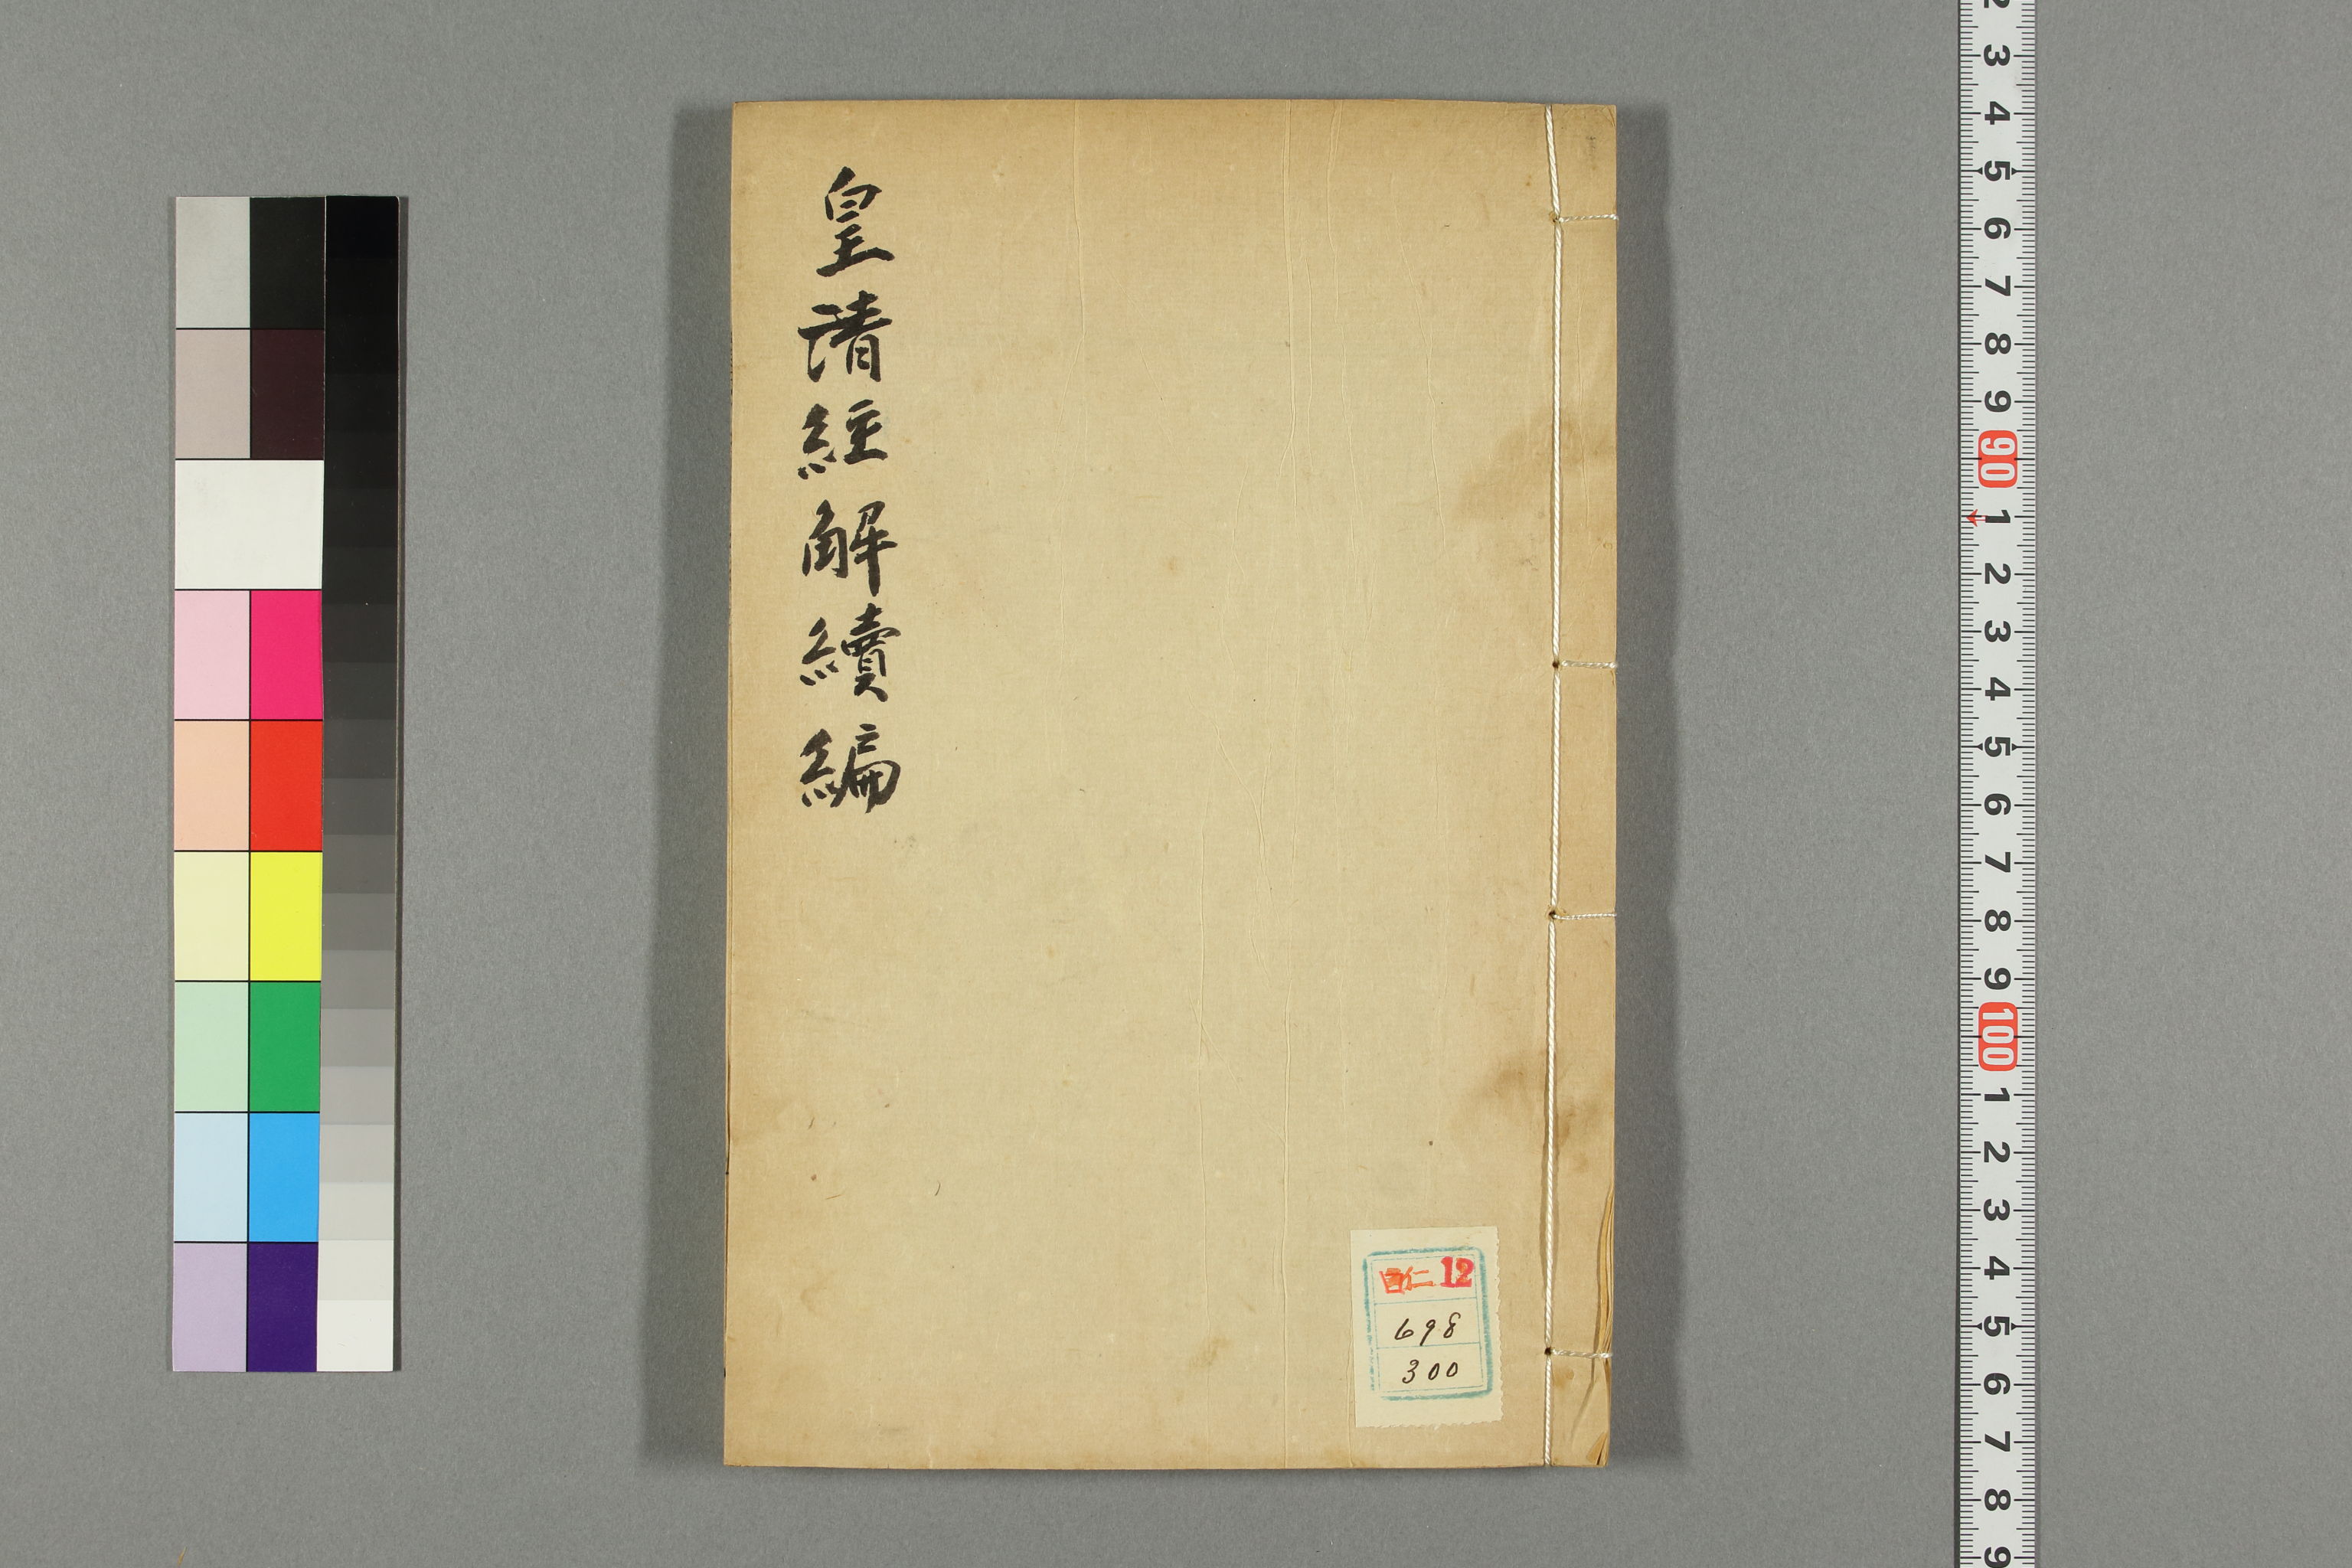 皇清経解續編
仁 12
698
300
2
3
4
5
6
7
8
9
90
1
2
3
4
5
6
7
8
9
100
1
2
3
4
5
6
7
8
9